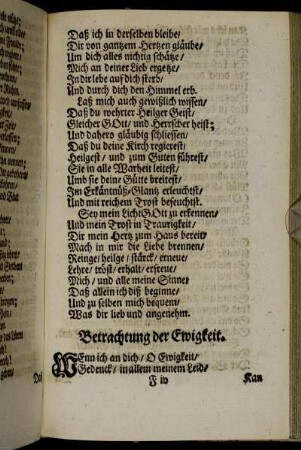 Daß ich in derselben bleibe/
Dir von gantzem Hertzen gläube/
Um dich alles nichtig schätze/
Mich an deiner Lieb ergetze/
In dir lebe auf dich sterb/
Und durch dich den Himmel erb.
Laß mich auch gewißlich wissen/
Daß du wehrter Heilger Geist/
Gleicher GOtt/ und Herrscher heist;
Und dahero gläubig schliessen/
Daß du deine Kirch regierest/
Heilgest/ und zum Guten führest/
Sie in alle Warheit leitest/
Umb sie deine Gütte breitest/
Im Erkäntnüß/Glantz erleuchtst/
Und mit reichem Trost befeuchtst.
Sey mein Licht GOtt zu erkennen/
Und mein Trost in Traurigkeit/
Dir mein Hertz zum Haus bereit/
Mach in mir die Liebe brennen/
Reinge/ heilge/ stärck/ erneue/
Lehre/ tröst/ erhalt/ erfreue/
Mich/ und alle meine Sinne/
Daß allein ich diß beginne/
Und zu selben mich bequem/
Was dir lieb und angenehm.
Betrachtung der Ewigkeit.
WEnn ich an dich/ O Ewigkeit/
Gedenck/ in allem meinem Leid/
F iv
Kan